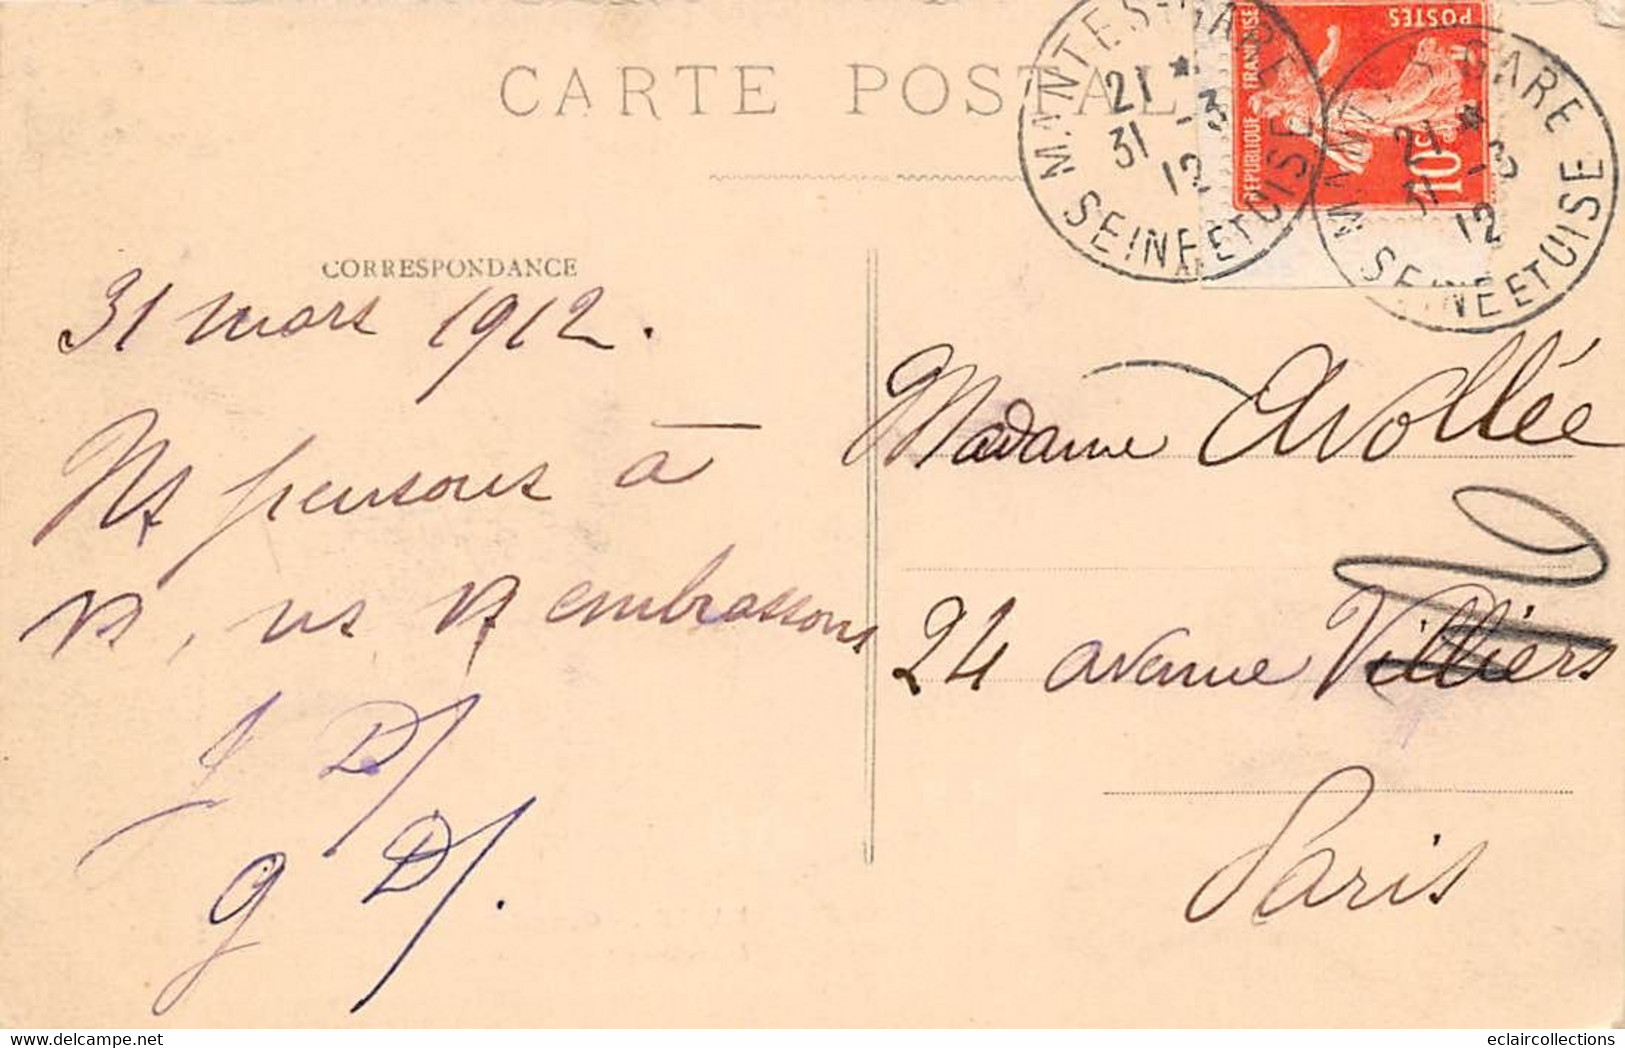 CARTE POSTALE
MANTES-GARE
21 *
31 -3
12
SEINE ET OISE
POSTES
REPUBLIQUE FRANÇAISE
10c
MANTES GARE
21 *
31 -3
12
SEINE ET OISE
CORRESPONDANCE
31 mars 1912.
Ns pensons à
vs, ns vs embrassons
J D/
G D/.
Madame Avollée
24 avenue Villiers
Paris
delcampe.net
eclaircollections